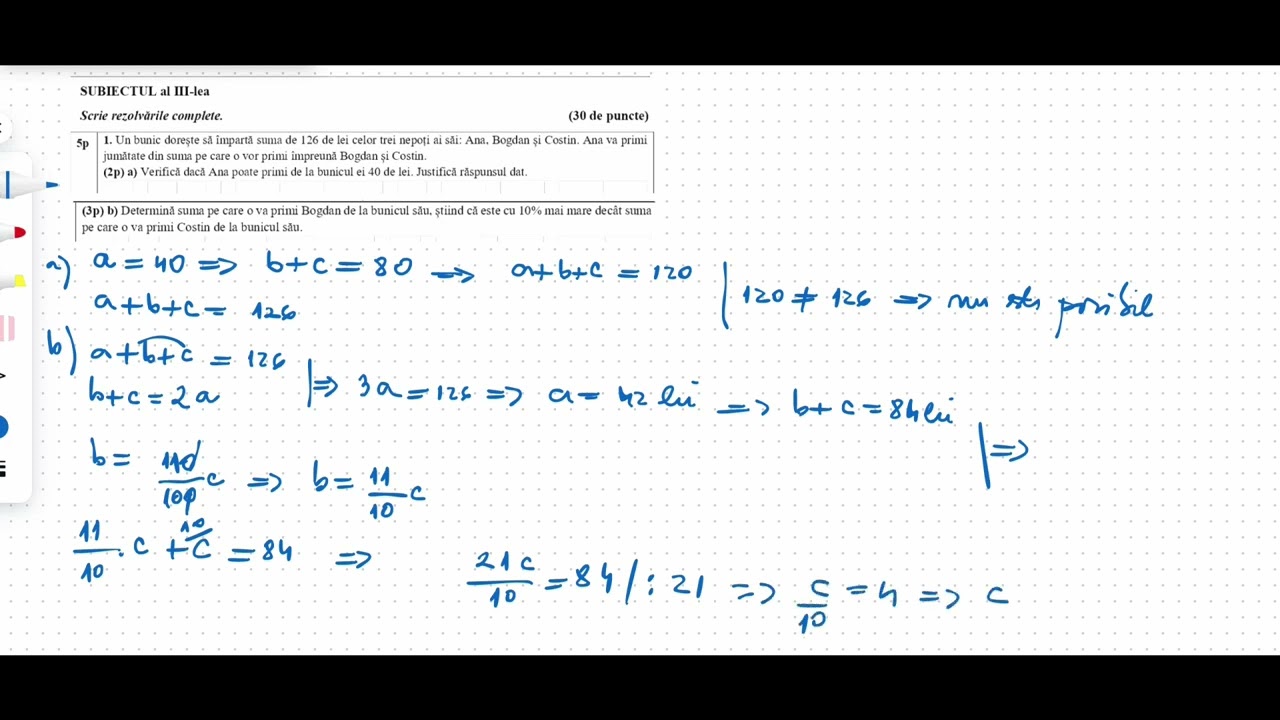 SUBIECTUL al III-lea
Scrie rezolvările complete. (30 de puncte)
5p 1. Un bunic dorește să împartă suma de 126 de lei celor trei nepoți ai săi: Ana, Bogdan și Costin. Ana va primi
jumătate din suma pe care o vor primi împreună Bogdan și Costin.
(2p) a) Verifică dacă Ana poate primi de la bunicul ei 40 de lei. Justifică răspunsul dat.
(3p) b) Determină suma pe care o va primi Bogdan de la bunicul său, știind că este cu 10% mai mare decât suma
pe care o va primi Costin de la bunicul său.
a) a = 40 => b+c = 80 => a+b+c = 120
a+b+c = 126 | 120 ≠ 126 => nu este posibil
b) a+b+c = 126
b+c = 2a |=> 3a = 126 => a = 42 lei => b+c = 84 lei |=>
b = 110/100 c => b = 11/10 c
11/10 · c + 10/c = 84 => 21c/10 = 84 /: 21 => c/10 = 4 => c